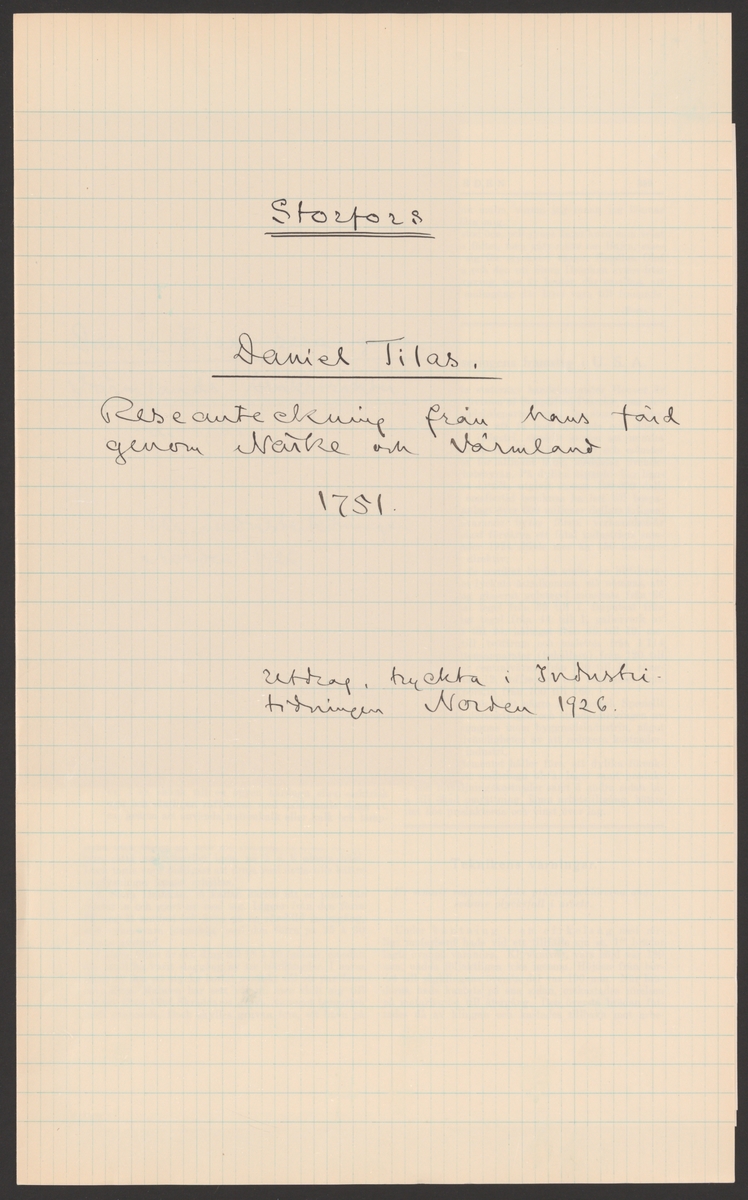 Storfors
Daniel Tilas.
Reseanteckning från hans färd
genom Närke och Värmland
1751.
utdrag, tryckta i Industri-
tidningen Norden 1926.